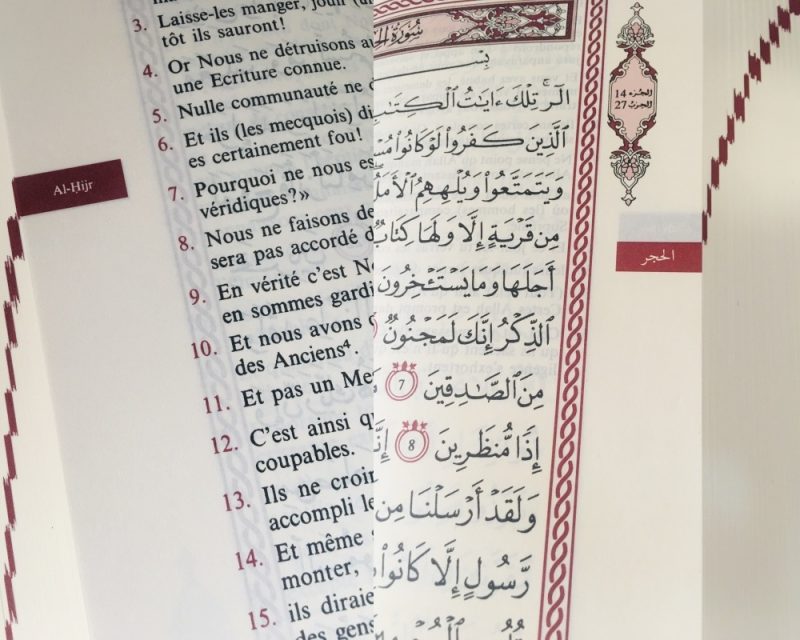 3. Laisse-les manger, jouir (d
tôt ils sauront!
4. Or Nous ne détruisons a
une Ecriture connue.
5. Nulle communauté ne d
6. Et ils (les mecquois) di
es certainement fou!
7. Pourquoi ne nous es
véridiques?»
8. Nous ne faisons de
sera pas accordé d
9. En vérité c'est N
en sommes gardi
10. Et nous avons
des Anciens⁴.
11. Et pas un Me
12. C'est ainsi q
coupables.
13. Ils ne croir
accompli le
14. Et même
monter,
15. ils diraie
des gens
Al-Ḥijr
سُورَةُ الحِ
بِسْ
الٓر تِلْكَ ءَايَٰتُ ٱلْكِتَٰبِ
ٱلَّذِينَ كَفَرُوا۟ لَوْ كَانُوا۟ مُسْ
وَيَتَمَتَّعُوا۟ وَيُلْهِهِمُ ٱلْأَمَلُ
مِن قَرْيَةٍ إِلَّا وَلَهَا كِتَابٌ
أَجَلَهَا وَمَا يَسْتَـْٔخِرُونَ
ٱلذِّكْرُ إِنَّكَ لَمَجْنُونٌ
مِنَ ٱلصَّٰدِقِينَ 7
إِذًا مُّنظَرِينَ 8 إِنَّ
وَلَقَدْ أَرْسَلْنَا مِن
رَّسُولٍ إِلَّا كَانُوا۟
الجزء 14
الحزب 27
الحجر